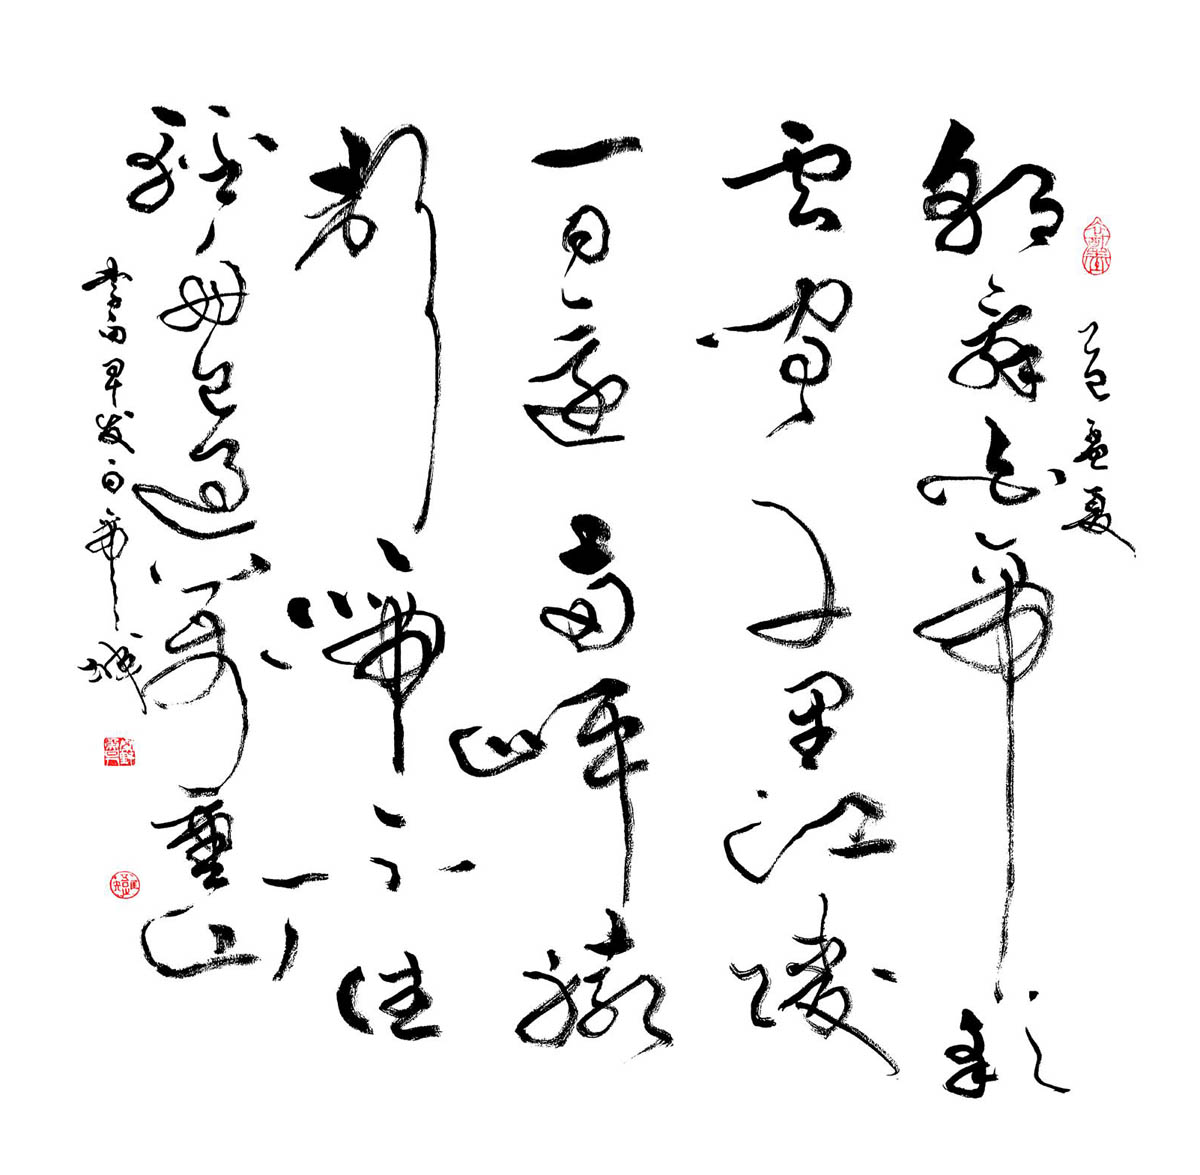 乙巳孟夏
朝辭白帝彩
雲間千里江陵
一日還兩岸猿
聲啼不住
輕舟已過萬重山
李白早发白帝城